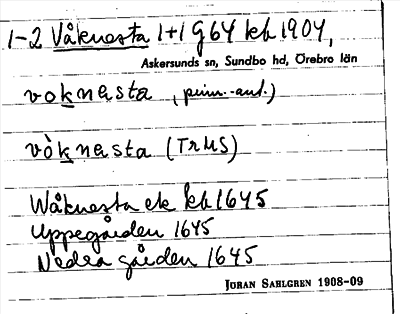 1-2 Våknesta 1+1 g 64 kb 1904,
Askersunds sn, Sundbo hd, Örebro län
voknesta, (prim.-ant.)
vòknesta (TrMS)
Wåknesta etc kb 1645
Uppegården 1645
Nedra gården 1645
JÖRAN SAHLGREN 1908-09